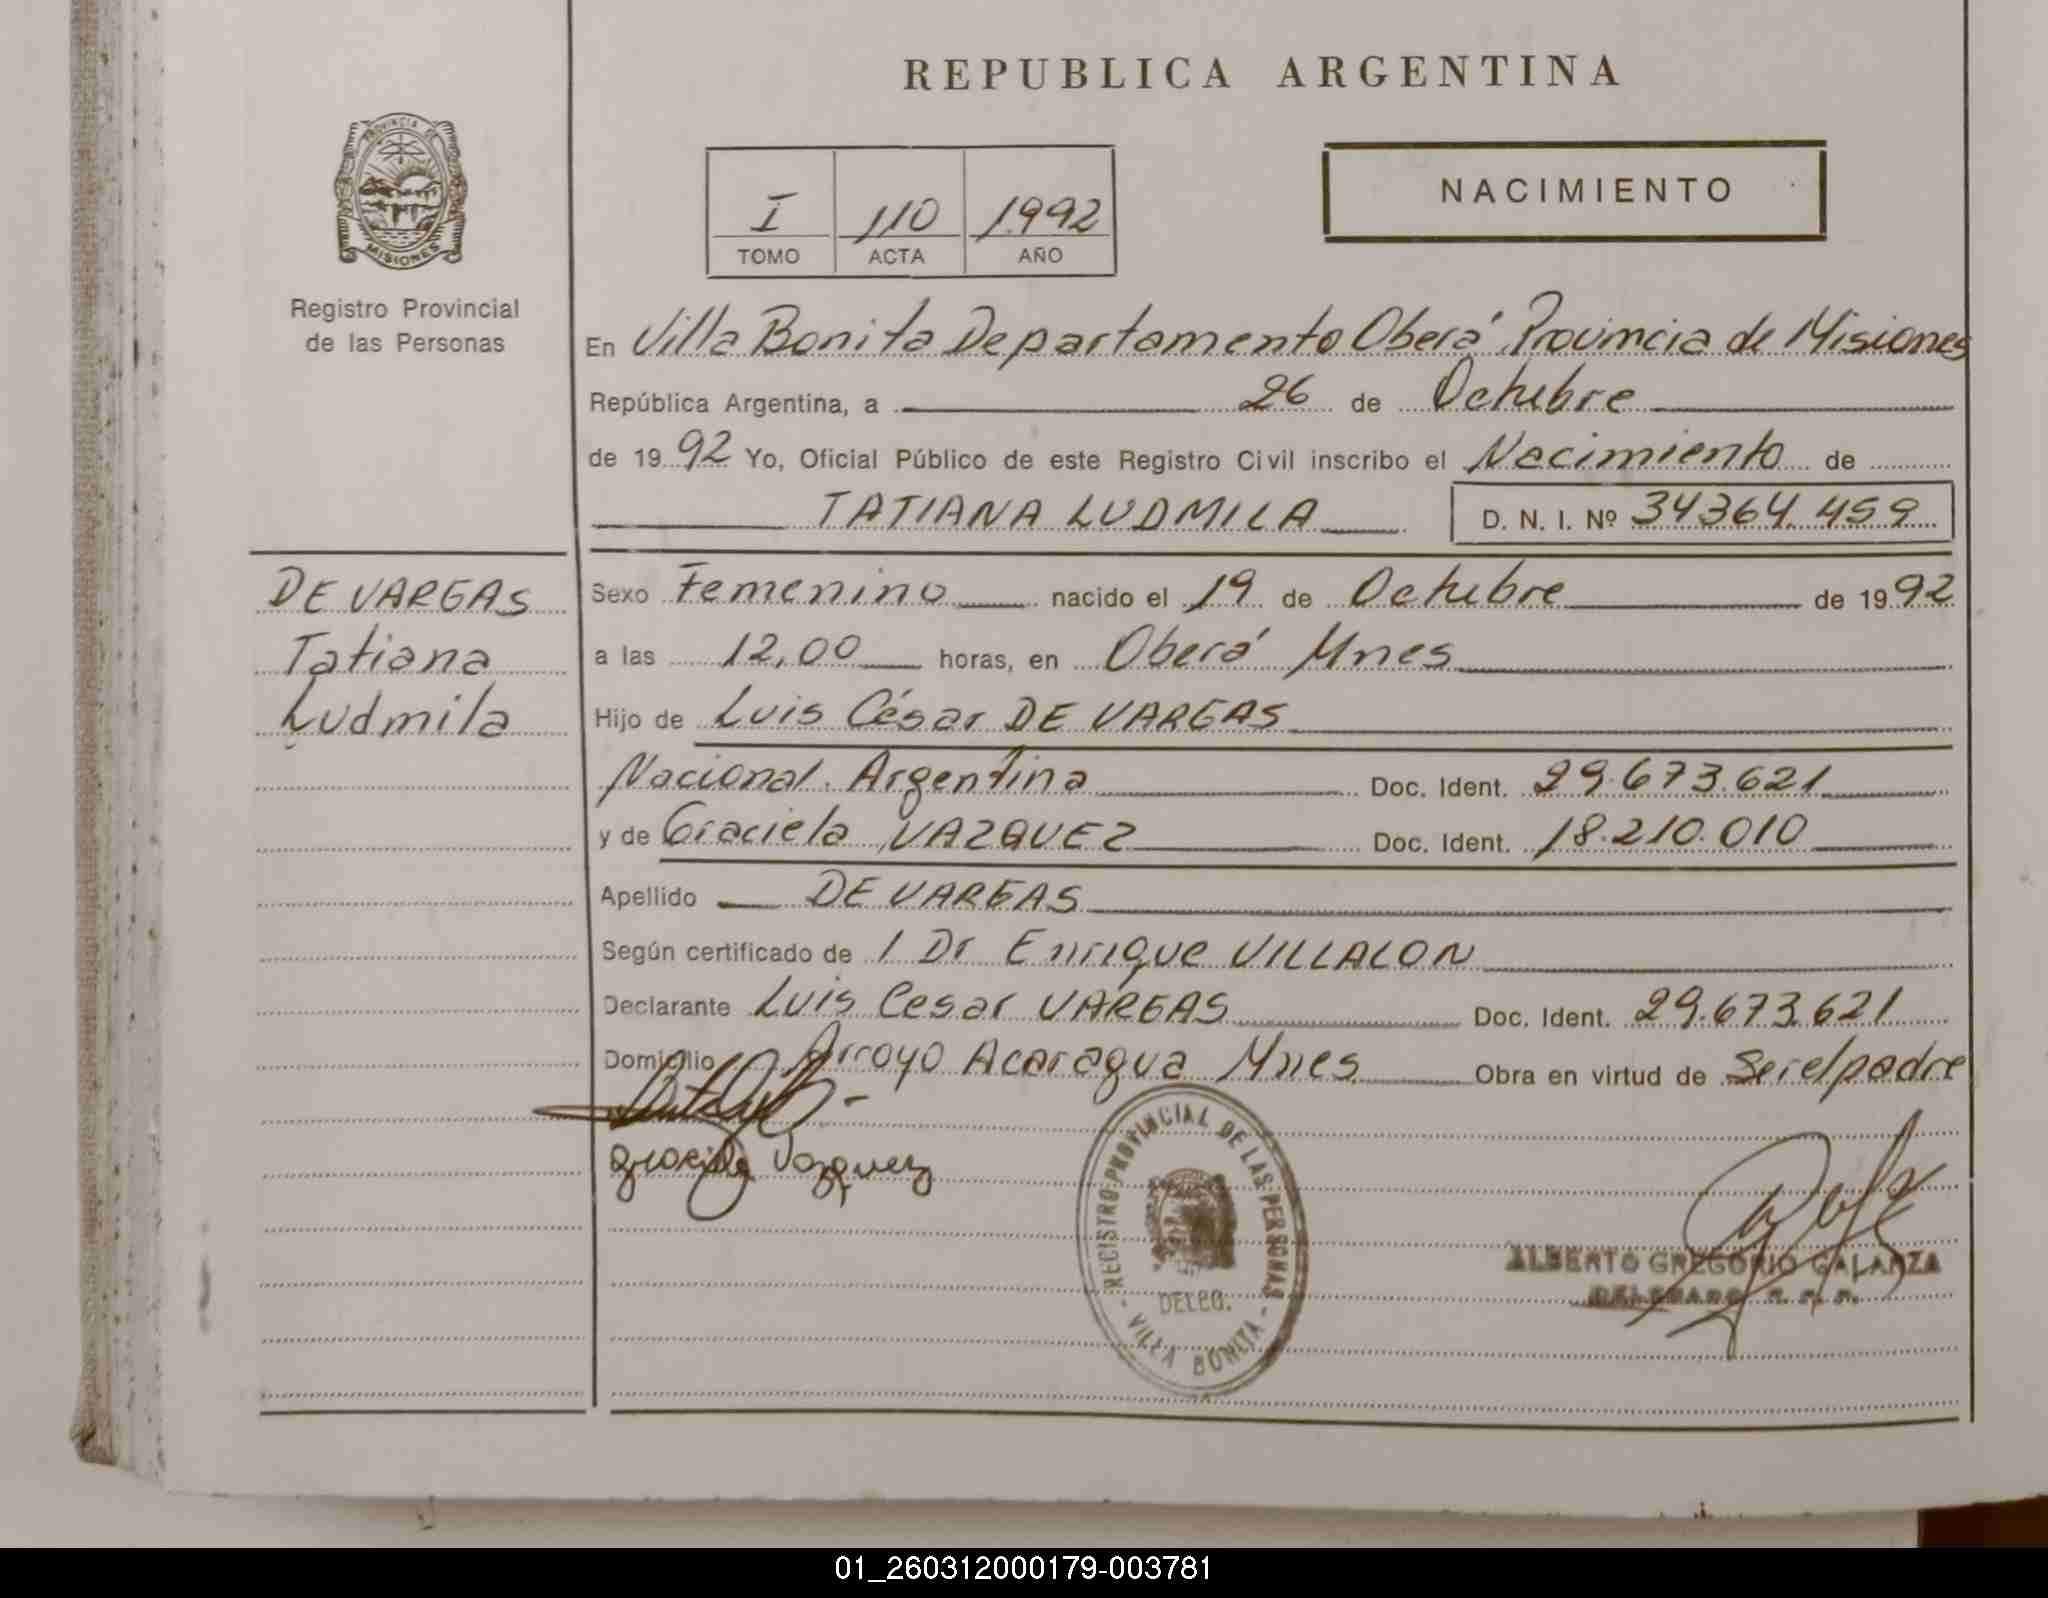 REPUBLICA ARGENTINA
PROVINCIA DE
MISIONES
Registro Provincial
de las Personas
I 110 1992
TOMO ACTA AÑO
NACIMIENTO
En Villa Bonita Departamento Oberá Provincia de Misiones
República Argentina, a 26 de Octubre
de 1992 Yo, Oficial Público de este Registro Civil inscribo el Nacimiento de
TATIANA LUDMILA D. N. I. Nº 34364.459
DE VARGAS
Tatiana
Ludmila
Sexo Femenino nacido el 19 de Octubre de 1992
a las 12,00 horas, en Oberá Mnes
Hijo de Luis César DE VARGAS
Nacional. Argentina Doc. Ident. 29.673.621
y de Graciela VAZQUEZ Doc. Ident. 18.210.010
Apellido DE VARGAS
Según certificado de / Dr Enrique VILLALON
Declarante Luis Cesar VARGAS Doc. Ident. 29.673.621
Domicilio Arroyo Acaragua Mnes Obra en virtud de Serelpadre
graciela Vazquez
REGISTRO PROVINCIAL DE LAS PERSONAS
DELEG.
- VILLA BONITA -
ALBERTO GREGORIO GALARZA
DELEGADO R. P. P.
01_260312000179-003781